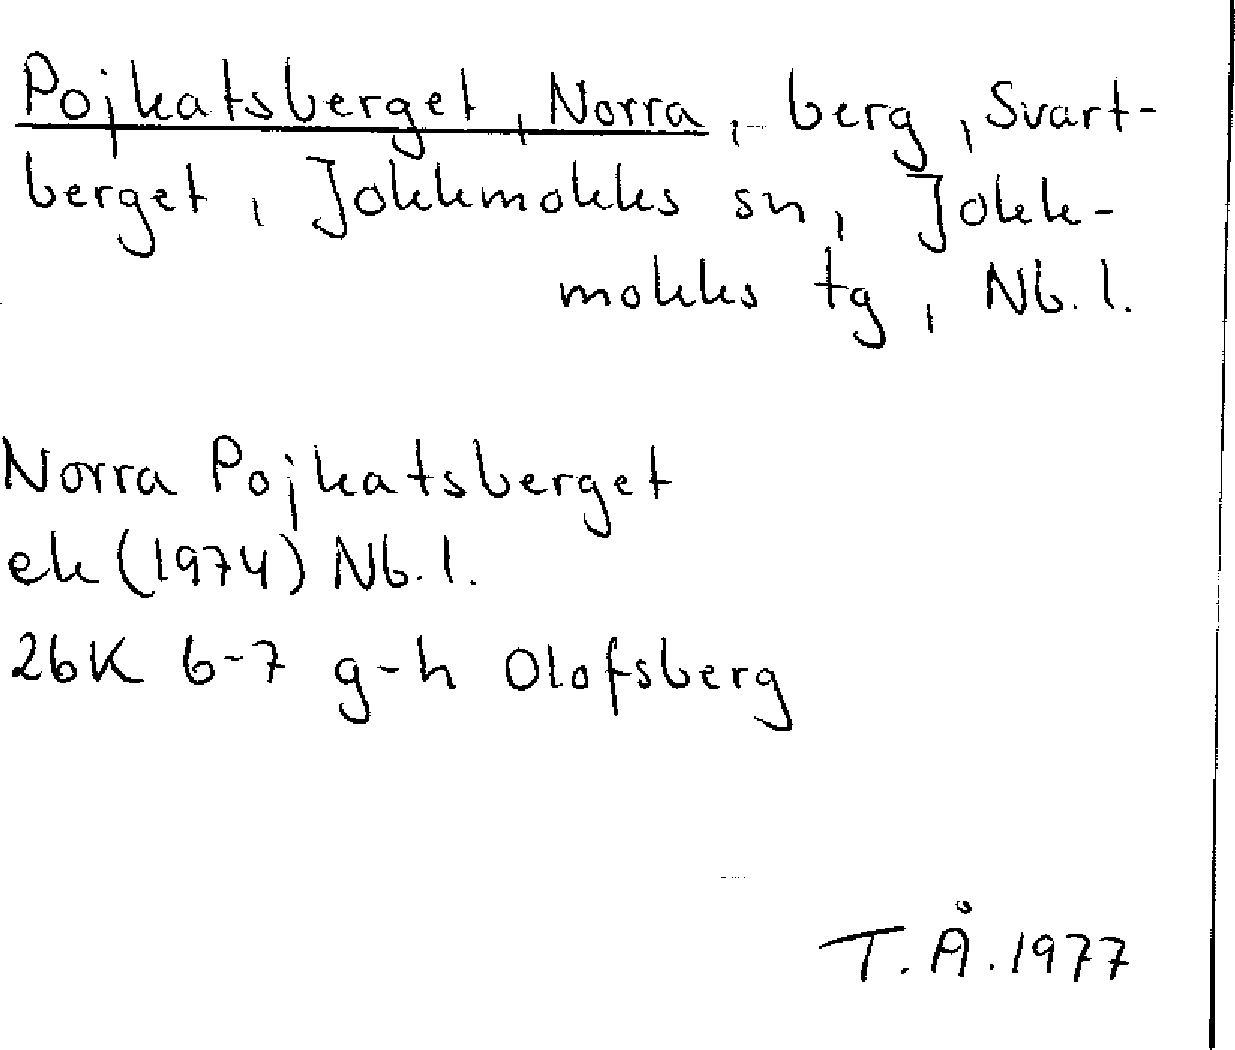 Pojkatsberget, Norra, berg, Svart-
berget, Jokkmokks sn, Jokk-
mokks tg, Nb. l.
Norra Pojkatsberget
ek (1974) Nb. l.
26K 6-7 g-h Olofsberg
T. Å. 1977